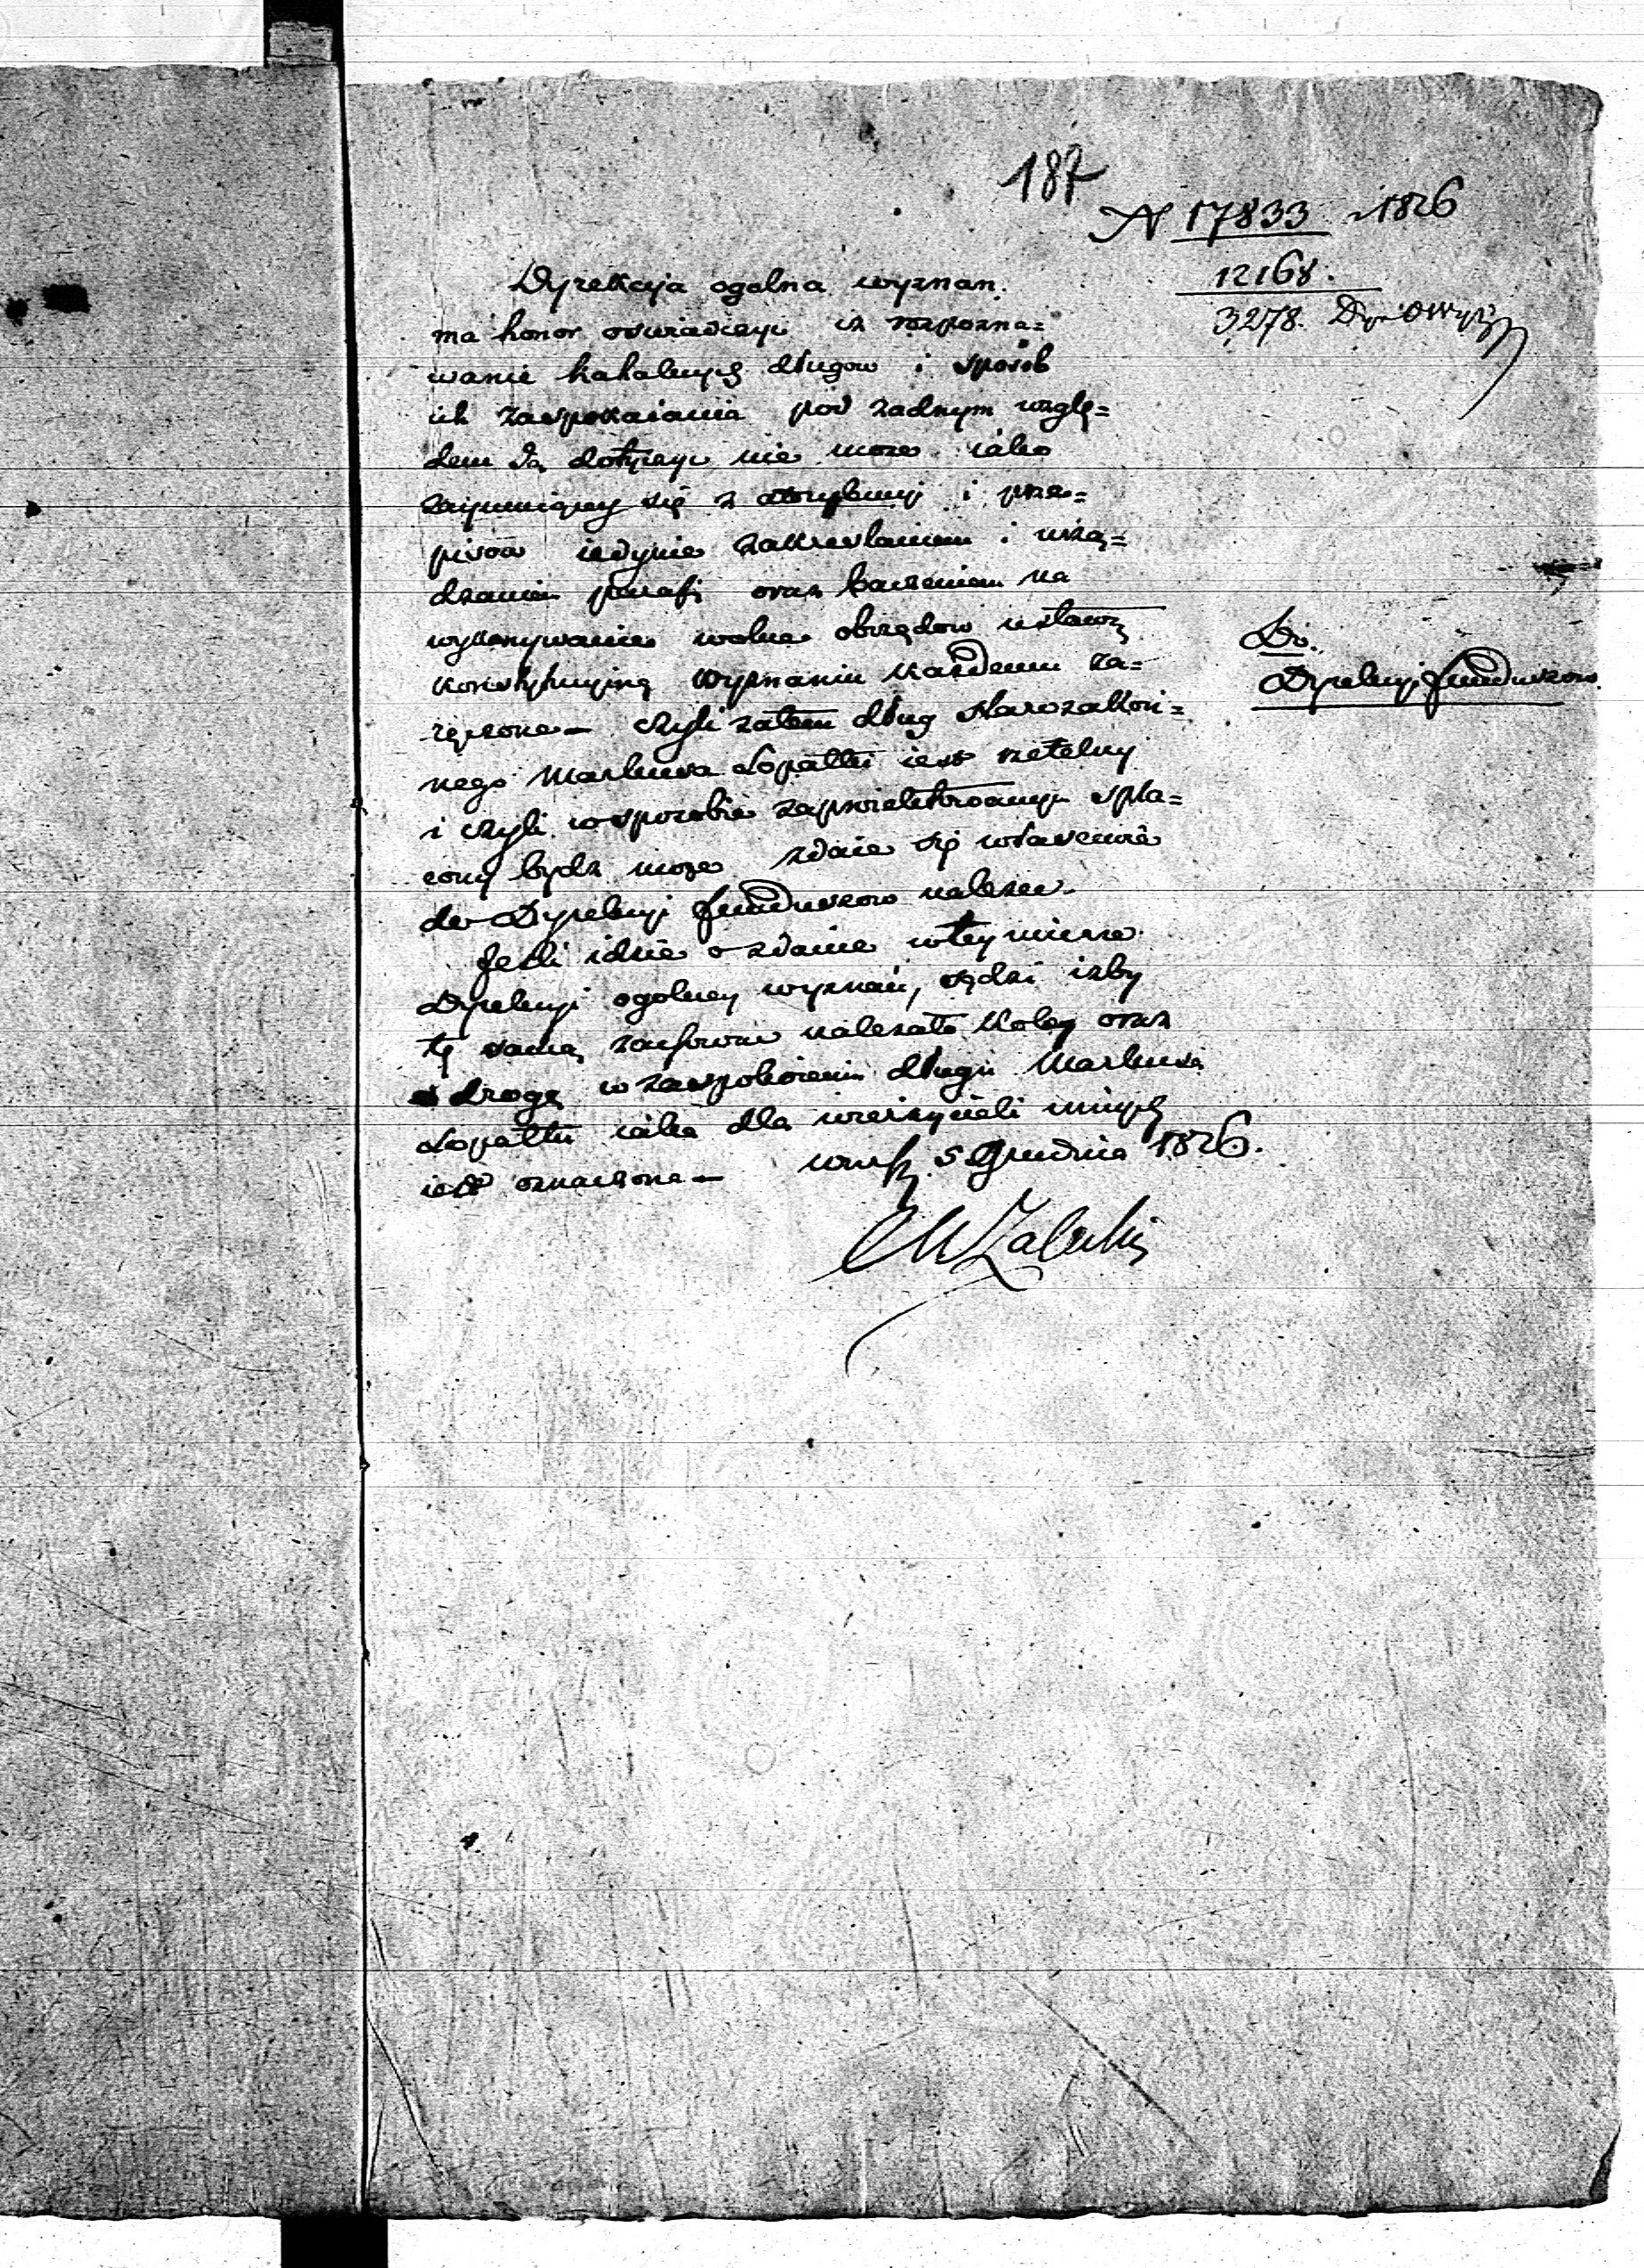 187
N 17833 1826
12168.
3278. Dyr OWyz
Dyrekcyja ogolna wyznan
ma honor oswiadczyć iż rozpozna=
wanie kahalnych długow i sposób
ich zaspokaiania pod żadnym wzglę=
dem Ją dotyczyć nie może iako
zaymuiącey się z attrybucyi i prze=
pisow iedynie zakreslaniem i urzą=
dzaniem parafii oraz baczeniem na
wykonywanie wolne obrzędow ustawą
konstytucyiną wyznaniu każdemu za=
ręczone — czyli zatem dług starozakon=
nego Markusa Łopatki iest rzetelny
i czyli w sposobie zaprojektowanym spła=
cony bydz może zdaie się własciwie
do Dyrekcyi funduszow należeć.
Do.
Dyrekcyi funduszow.
Jesli idzie o zdanie w tey mierze
Dyrekcyi ogolney wyznań, sądzi iżby
tę samą zachować należało koley oraz
drogę w zaspokoieniu długu Markusa
Łopatki iaka dla wierzycieli innych
iest oznaczona — 5 Grudnia 1826.
Załuski